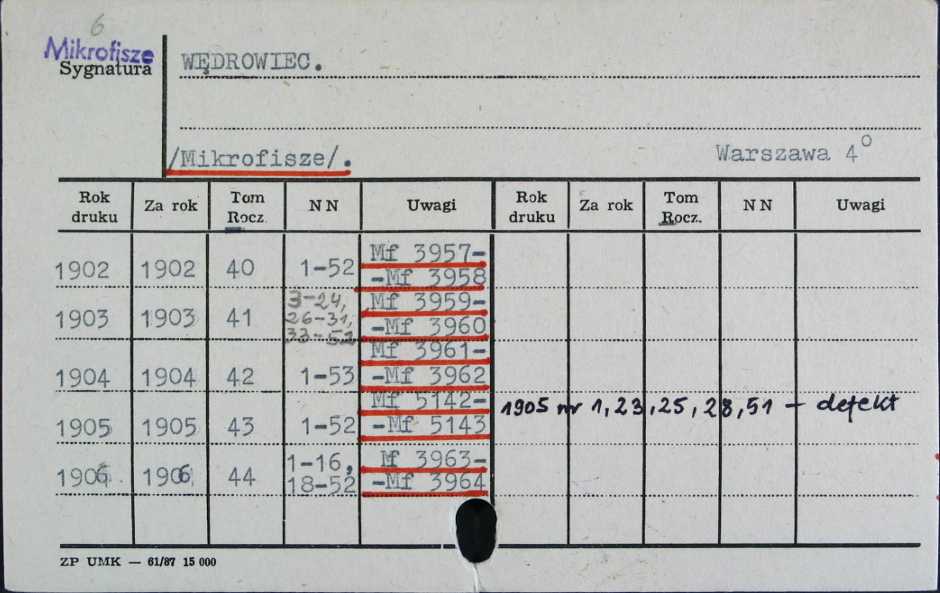 6
Mikrofisze
Sygnatura
WĘDROWIEC.
/Mikrofisze/.
Warszawa 4°
Rok druku Za rok Tom Rocz. NN Uwagi Rok druku Za rok Tom Rocz. NN Uwagi
1902 1902 40 1-52 Mf 3957-
-Mf 3958
1903 1903 41 3-24, 26-31, 33-52 Mf 3959-
-Mf 3960
1904 1904 42 1-53 Mf 3961-
-Mf 3962
1905 1905 43 1-52 Mf 5142-
-Mf 5143
1905 nr 1,23,25,28,51 - defekt
1906 1906 44 1-16, Mf 3963-
18-52 -Mf 3964
ZP UMK — 61/87 15 000